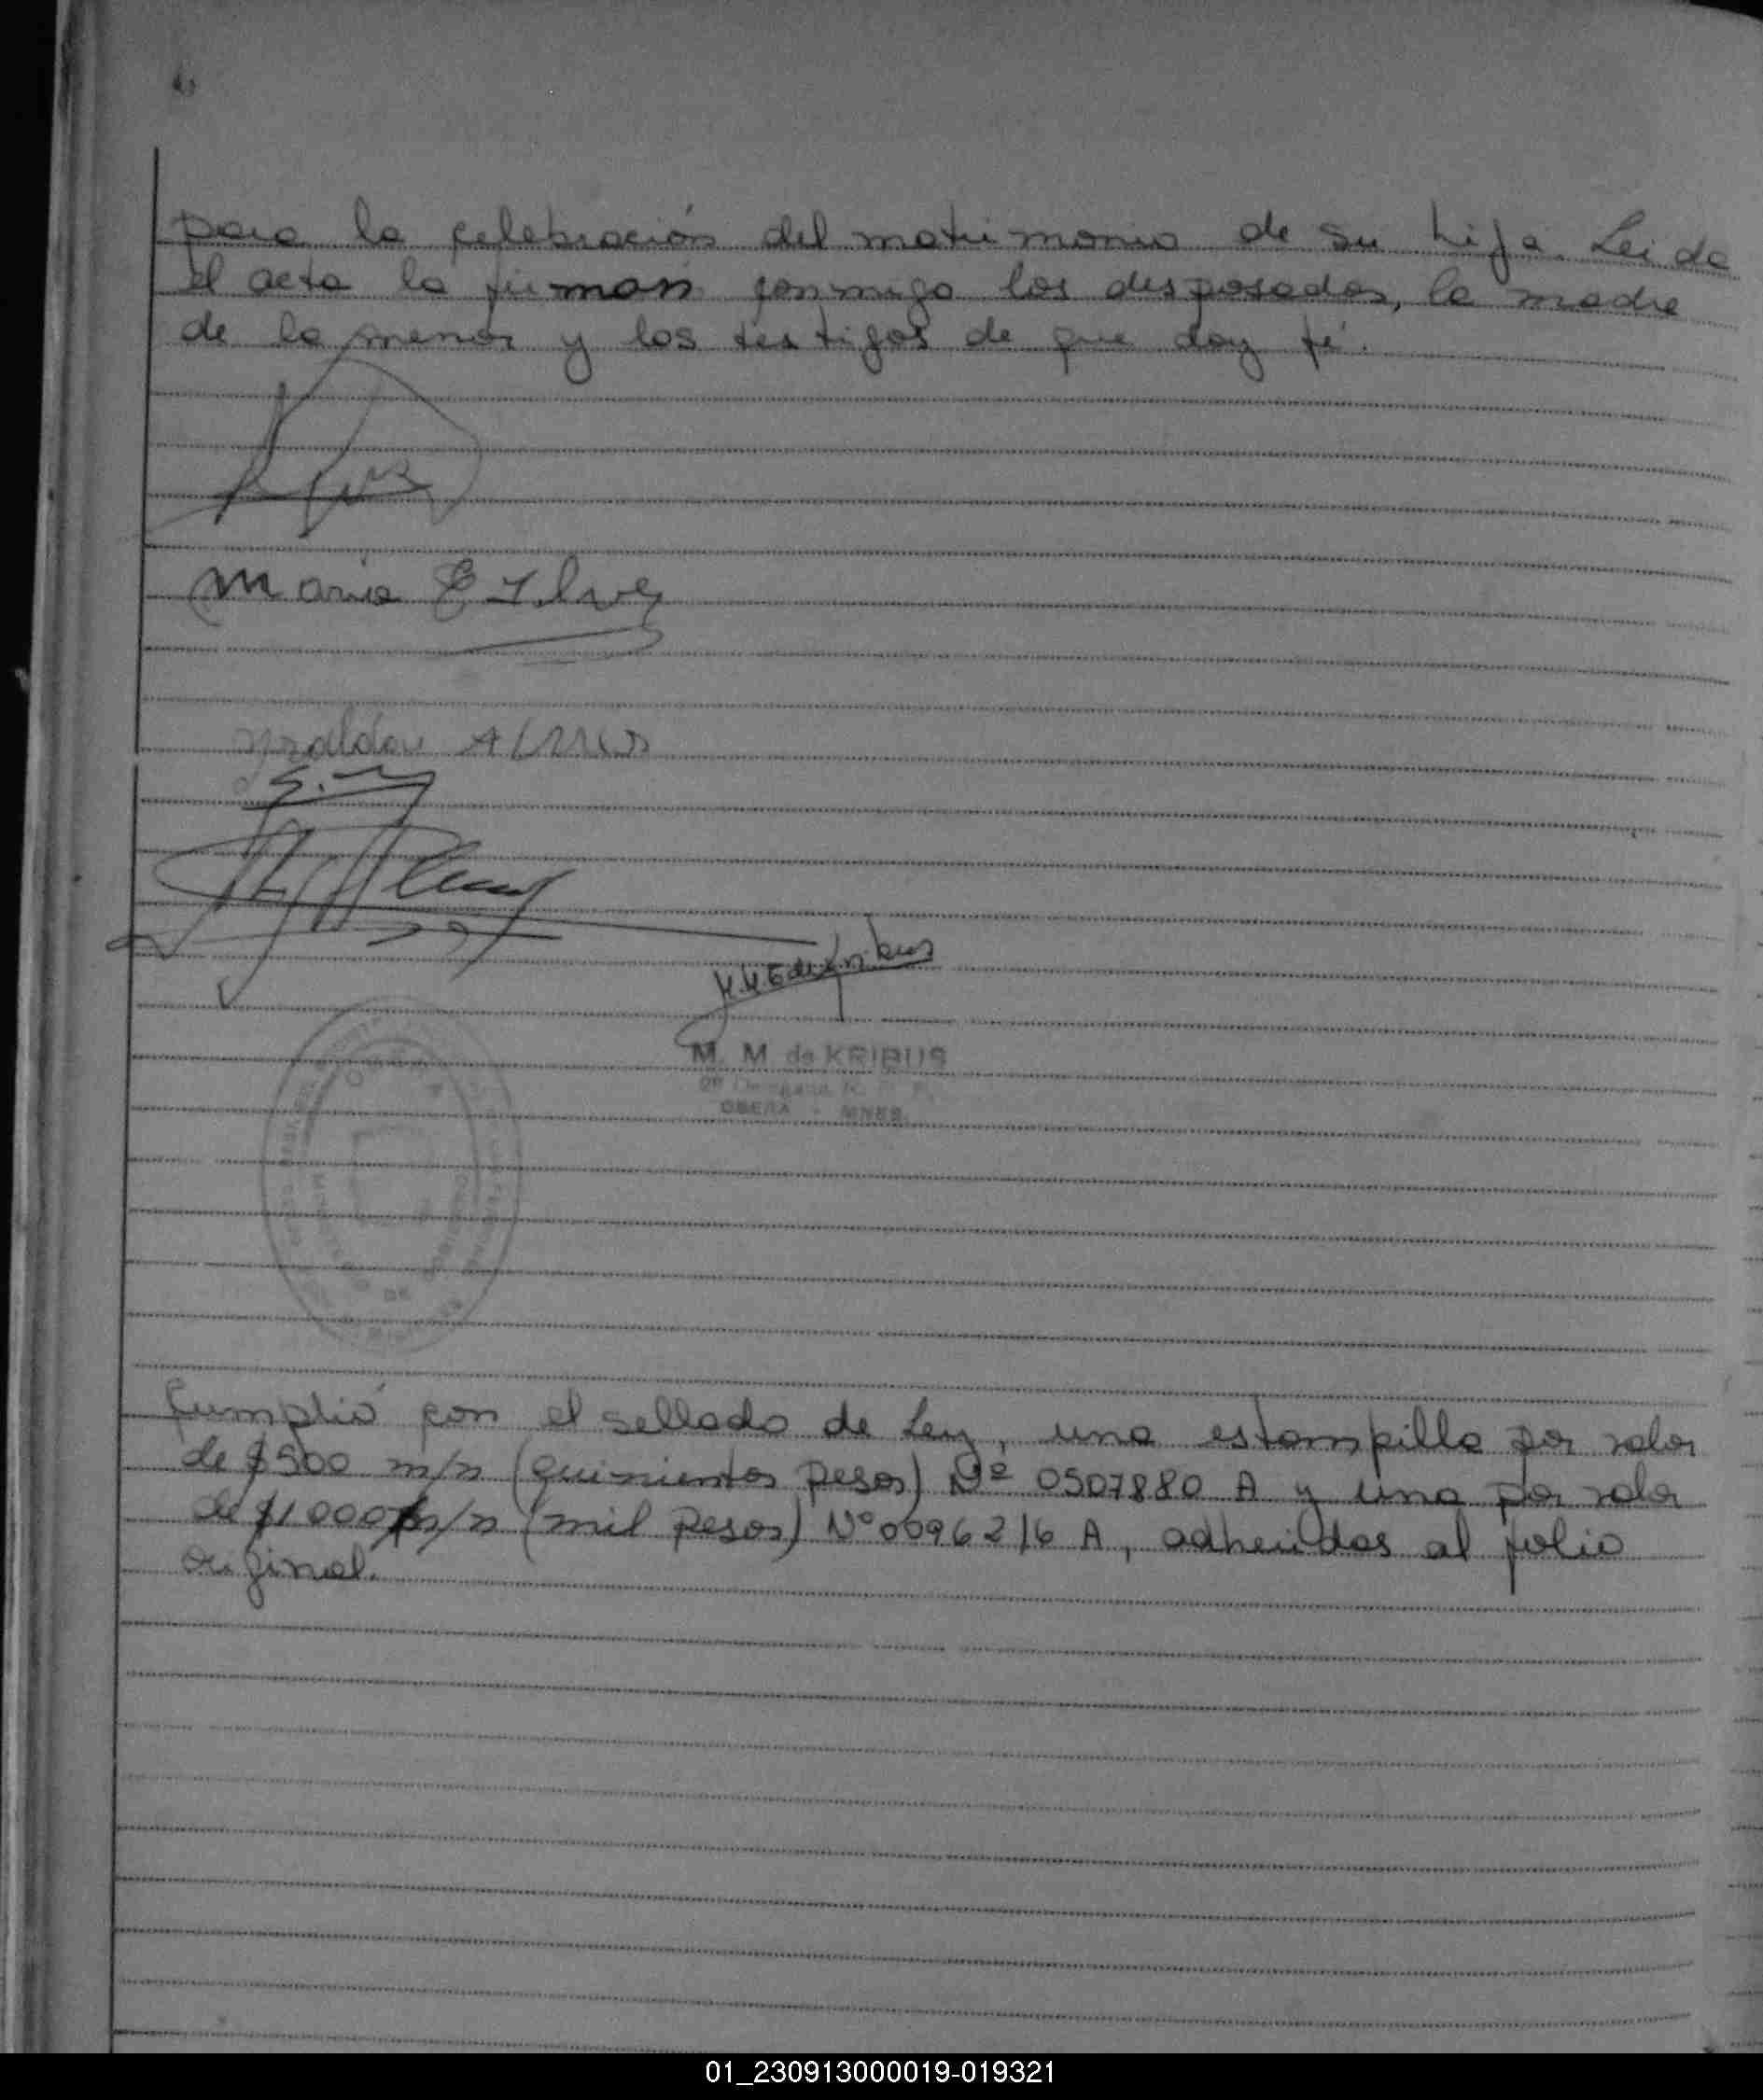 para la celebración del matrimonio de su hija. Leida
el acta la firman conmigo los desposados, la madre
de la menor y los testigos de que doy fé.
Maria E
M. M. de KRIBUS
OBERA - MNES.
DE
Cumplió con el sellado de Ley, una estampilla por valor
de $500 m/n (quinientos pesos) Nº 0507880 A y una por valor
de $1000 m/n (mil pesos) Nº 0096216 A, adheridas al folio
original.
01_230913000019-019321